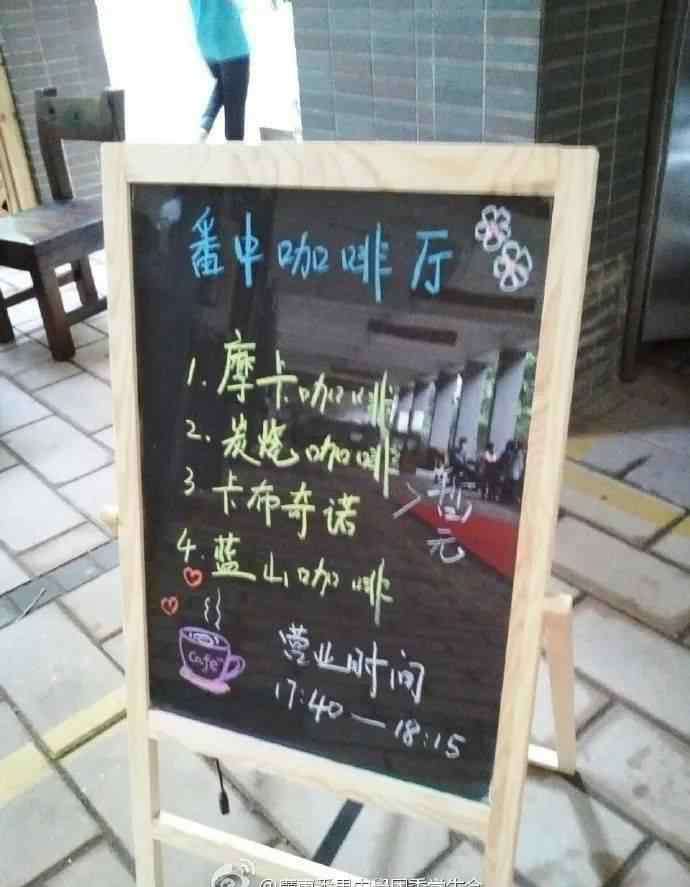 番中咖啡厅
1. 摩卡咖啡
2. 炭烧咖啡
3 卡布奇诺
4. 蓝山咖啡
元
cafe
营业时间
17:40—18:15